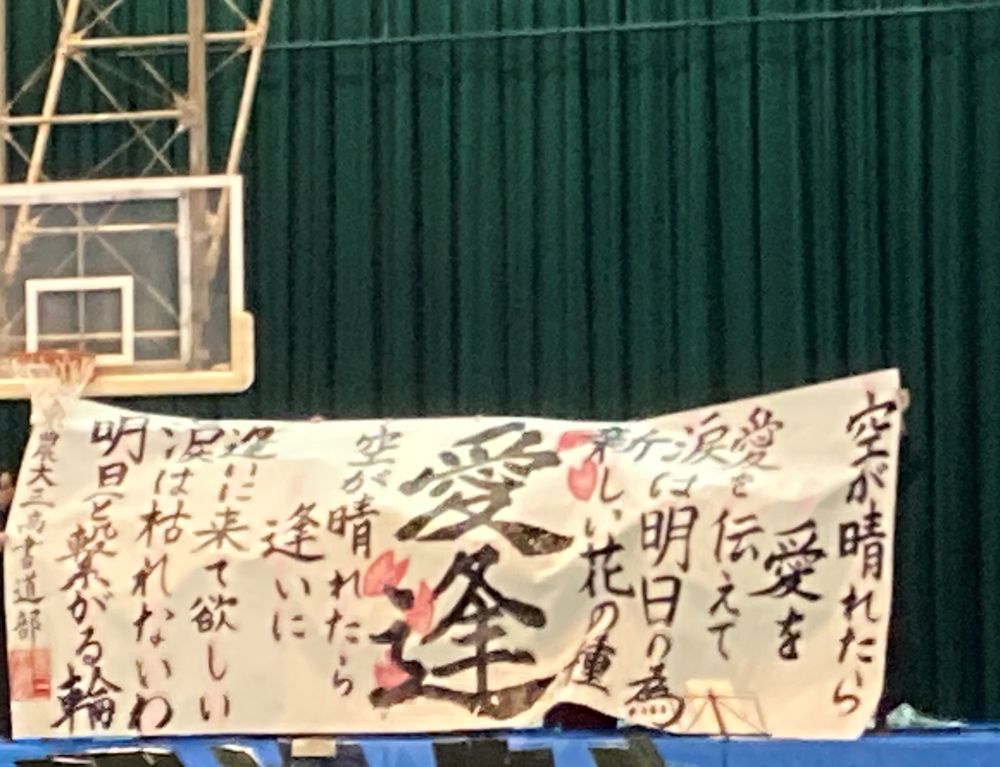 空が晴れたら
愛を
愛を伝えて
涙は明日の為
新しい花の種
愛
逢
空が晴れたら
逢いに
逢いに来て欲しい
涙は枯れないわ
明日へと繋がる輪
農大三高書道部